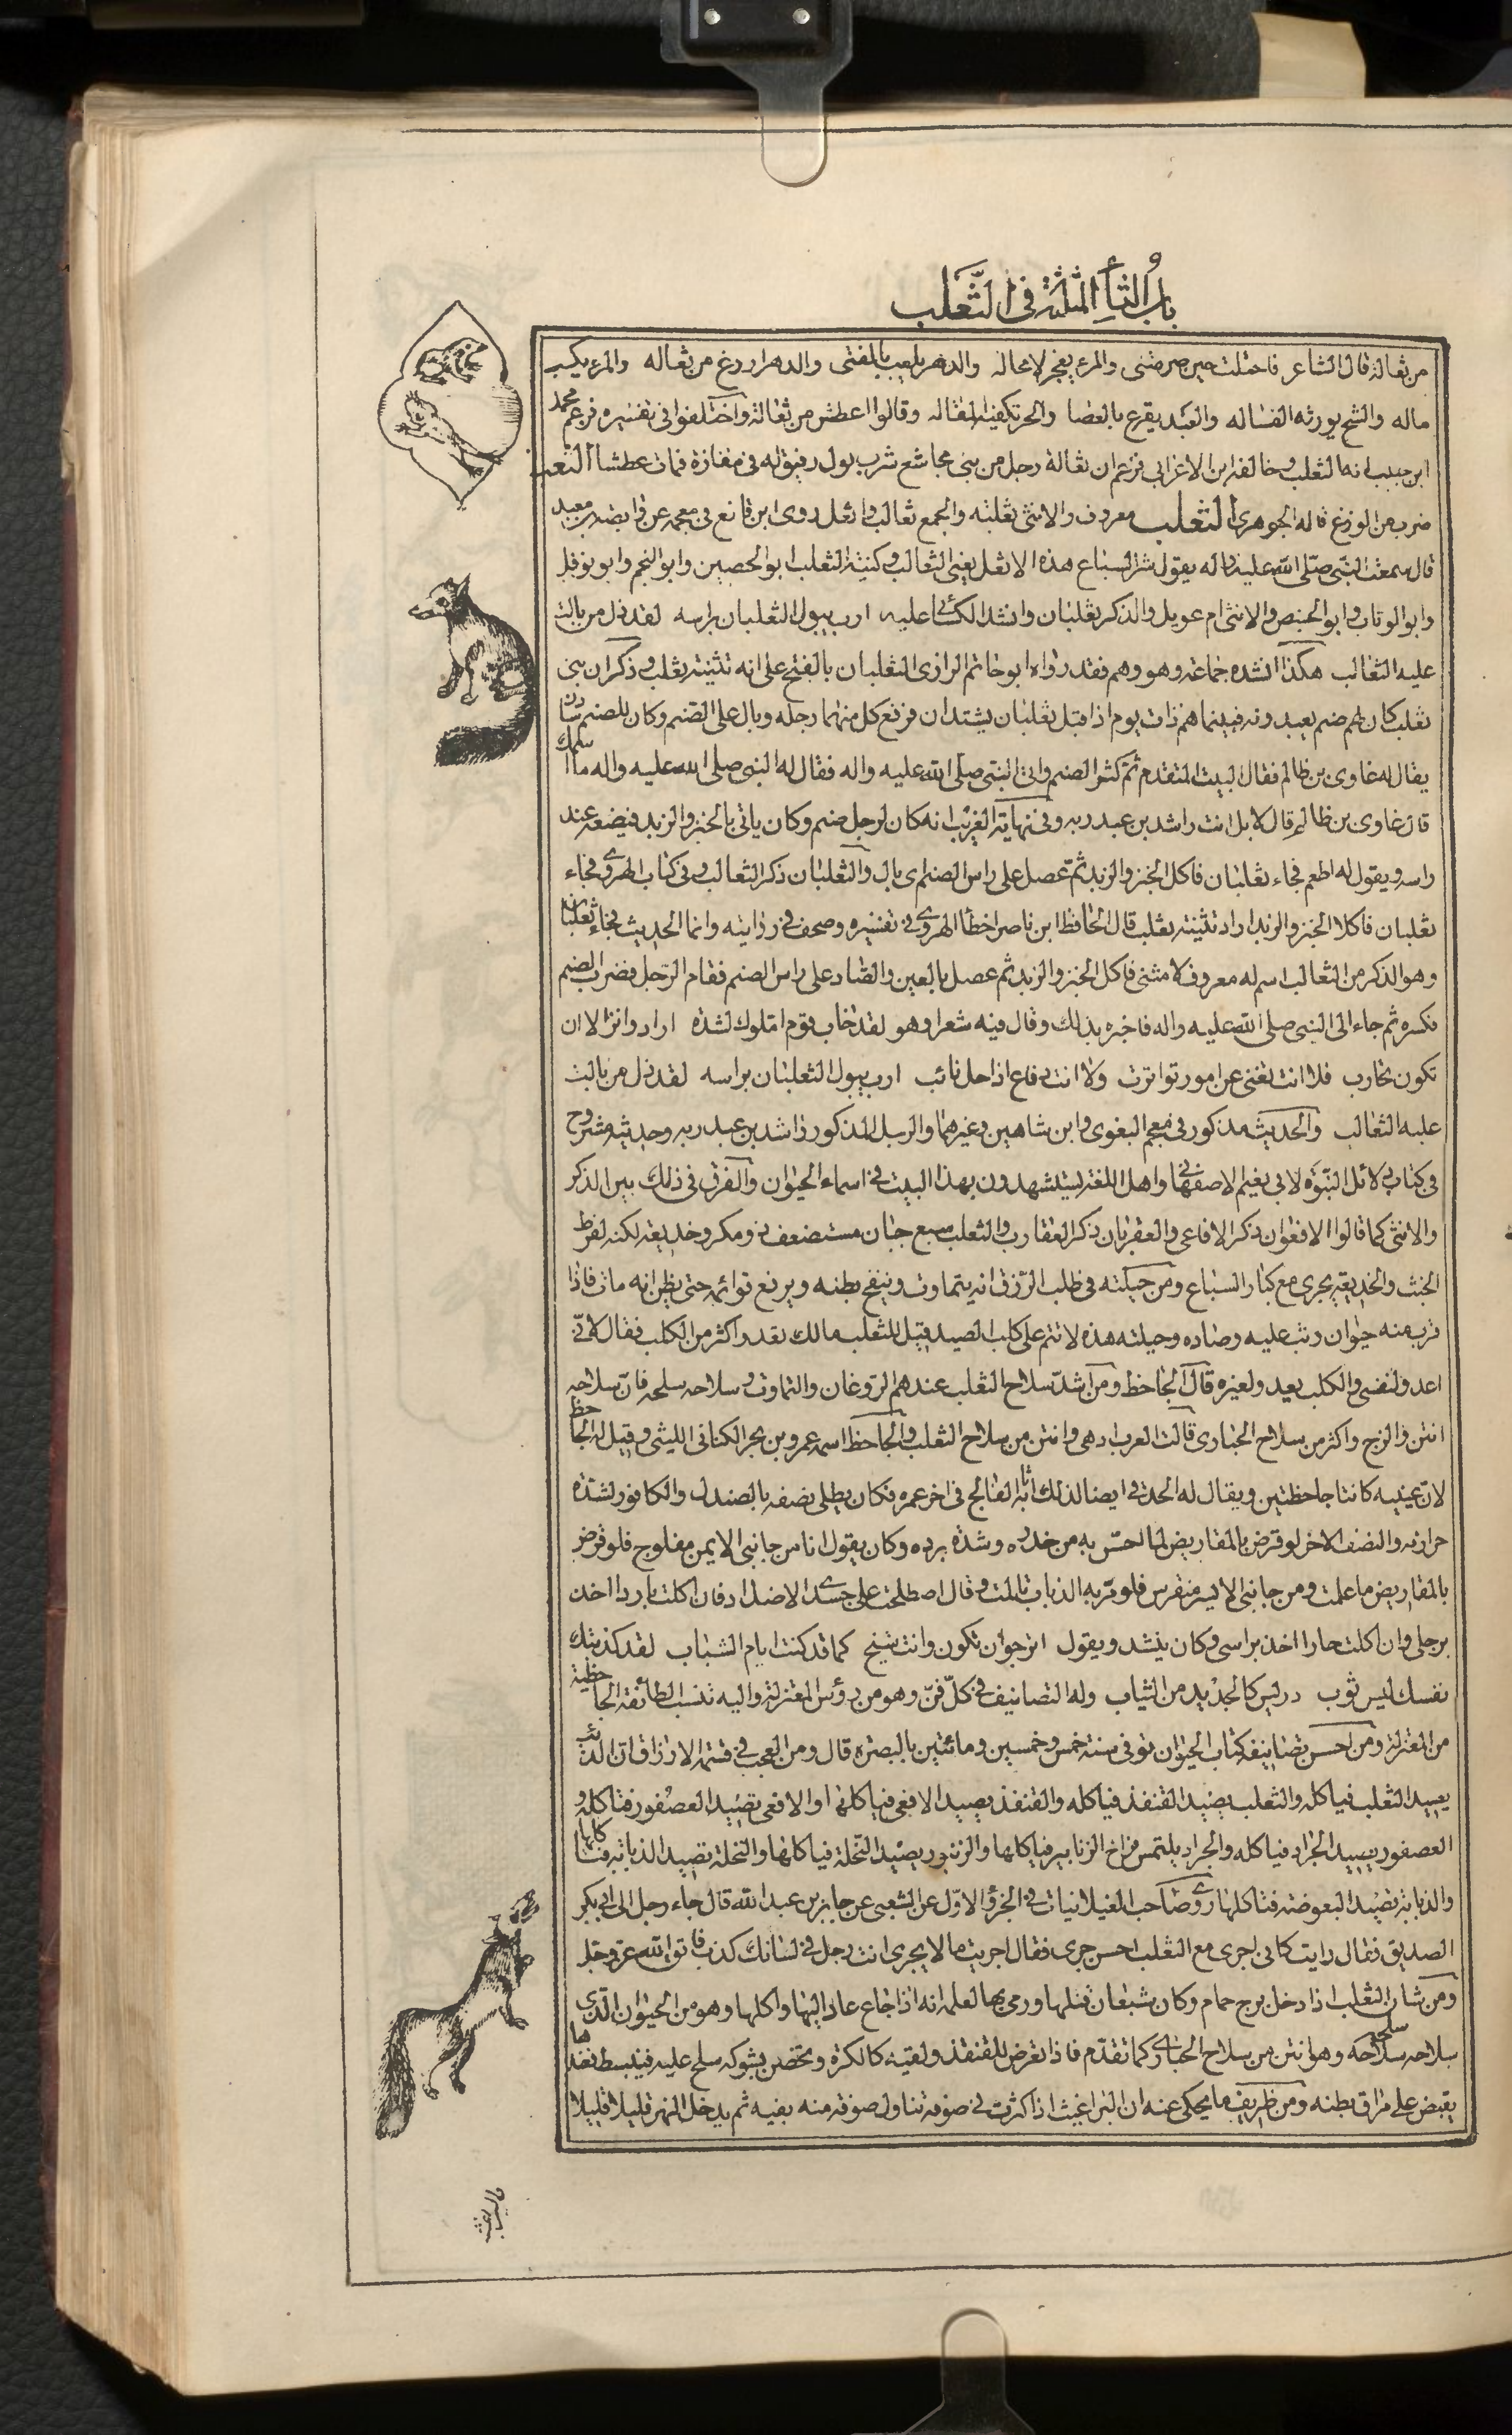 باب الثاء المثلثة في الثعلب
من ثعالة قال الشاعر فاحتلت حين صرمتنى والمرء يعجز لا محاله والدهر يلعب بالفتى والدهر اروغ من ثعاله والمرء يكسب
ماله والشح يورثه الفساله والعبد يقرع بالعصا والحر تكفيه المقاله وقالوا اعطش من ثعالة واختلفوا فى تفسيره فزعم محمد
ابن حبيب انه الثعلب وخالفه ابن الاعرابى فزعم ان ثعالة رجل من بنى مجاشع شرب بول رفيق له فى مفازة فمات عطشا الثعبة
ضرب من الوزغ قاله الجوهرى الثعلب معروف والانثى ثعلبه والجمع ثعالب واثعل روى ابن قانع فى معجمه عن وابصه بن معبد
قال سمعت النبى صلى الله عليه واله يقول شر السباع هذه الاثعل يعنى الثعالب وكنية الثعلب ابو الحصين وابو النجم وابو نوفل
وابو الوثاب وابو الحنبص والانثى ام عويل والذكر ثعلبان وانشد الكسائى عليه ارب يبول الثعلبان براسه لقد ذل من بالت
عليه الثعالب هكذا انشده جماعة وهو وهم فقد رواه ابو حاتم الرازى الثعلبان بالفتح على انه تثنية ثعلب وذكر ان بنى
ثعلب كان لهم صنم يعبدونه فبينما هم ذات يوم اذ اقبل ثعلبان يشتدان فرفع كل منهما رجله وبال على الصنم وكان للصنم سادن
يقال له غاوى بن ظالم فقال البيت المتقدم ثم كسر الصنم واتى النبى صلى الله عليه واله فقال له النبى صلى الله عليه واله ما اسمك
قال غاوى بن ظالم قال لا بل انت راشد بن عبد ربه وفى نهاية الغريب انه كان لرجل صنم وكان ياتى بالخبز والزبد فيضعه عند
راسه ويقول له اطعم فجاء ثعلبان فاكل الخبز والزبد ثم عصل على راس الصنم اى بال والثعلبان ذكر الثعالب وفى كتاب الهروى فجاء
ثعلبان فاكلا الخبز والزبد اراد تثنية ثعلب قال الحافظ ابن ناصر اخطأ الهروى فى تفسيره وصحف فى روايته وانما الحديث فجاء ثعلبان
وهو الذكر من الثعالب اسم له معروف لا مثنى فاكل الخبز والزبد ثم عصل بالعين والصاد على راس الصنم فقام الرجل فضرب الصنم
فكسره ثم جاء الى النبى صلى الله عليه واله فاخبره بذلك وقال فيه شعرا وهو لقد خاب قوم املوك لشدة ارادوا نزالا ان
تكون تحارب فلا انت تغنى عن امور تواترت ولا انت دفاع اذا حل نائب ارب يبول الثعلبان براسه لقد ذل من بالت
عليه الثعالب والحديث مذكور فى معجم البغوى وابن شاهين وغيرهما والرجل المذكور راشد بن عبد ربه وحديثه مشروح
فى كتاب دلائل النبوة لابى نعيم الاصفهانى واهل اللغة يستشهدون بهذا البيت فى اسماء الحيوان والفرق فى ذلك بين الذكر
والانثى كما قالوا الافعوان ذكر الافاعى والعقربان ذكر العقارب والثعلب سبع جبان مستضعف ذو مكر وخديعة لكنه لفرط
الخبث والخديعة يجرى مع كبار السباع ومن حيلته فى طلب الرزق انه يتماوت وينفخ بطنه ويرفع قوائمه حتى يظن انه مات فاذا
قرب منه حيوان وثب عليه وصاده وحيلته هذه لا تتم على كلب الصيد قيل للثعلب مالك تعدو اكثر من الكلب فقال لانى
اعدو لنفسى والكلب يعدو لغيره قال الجاحظ ومن اشد سلاح الثعلب عندهم الروغان والتماوت وسلاحه سلحه فان سلاحه
انتن والزج واكثر من سلاح الحبارى قالت العرب ادهى وانتن من سلاح الثعلب والجاحظ اسمه عمرو بن بحر الكنانى الليثى وقيل له الجاحظ
لان عينيه كانتا جاحظتين ويقال له الحدقى ايضا لذلك اثابه الفالج فى اخر عمره فكان يطلى نصفه بالصندل والكافور لشدة
حرارته والنصف الاخر لو قرض بالمقاريض لما احس به من خدره وشدة برده وكان يقول انا من جانبى الايمن مفلوج فلو قرض
بالمقاريض ما علمت ومن جانبى الايسر منقرس فلو مر به الذباب تالمت وقال اصطلحت على جسدى الاضداد فان اكلت باردا اخذ
برجلى وان اكلت حارا اخذ براسى وكان ينشد ويقول اترجو ان تكون وانت شيخ كما قد كنت ايام الشباب لقد كذبتك
نفسك ليس ثوب دريس كالجديد من الثياب وله التصانيف فى كل فن وهو من رؤس المعتزلة واليه تنسب الطائفة الجاحظية
من المعتزلة ومن احسن تصانيفه كتاب الحيوان توفى سنة خمس وخمسين ومائتين بالبصره قال ومن العجب فى قسمة الارزاق ان الذئب
يصيد الثعلب فياكله والثعلب يصيد القنفذ فياكله والقنفذ يصيد الافعى فياكلها والافعى تصيد العصفور فتاكله و
العصفور يصيد الجراد فياكله والجراد يلتمس فراخ الزنابير فياكلها والزنبور يصيد النحلة فياكلها والنحلة تصيد الذبابة فتاكلها
والذبابة تصيد البعوضة فتاكلها روى صاحب الغيلانيات فى الجزؤ الاول عن الشعبى عن جابر بن عبد الله قال جاء رجل الى ابى بكر
الصديق فقال رايت كانى اجرى مع الثعلب احسن جرى فقال اجريت ما لا يجرى انت رجل فى لسانك كذب فاتق الله عز وجل
ومن شان الثعلب اذا دخل برج حمام وكان شبعان قتلها ورمى بها لعلمه انه اذا جاع عاد اليها واكلها وهو من الحيوان الذى
سلاحه سلحه وهو انتن من سلاح الحبارى كما تقدم فاذا تعرض للقنفذ ولقيه كالكرة وتحصن بشوكه سلح عليه فينبسط فعندها
يقبض على مراق بطنه ومن ظريف ما يحكى عنه ان البراغيث اذا كثرت فى صوفه تناول صوفة منه بفيه ثم يدخل النهر قليلا قليلا